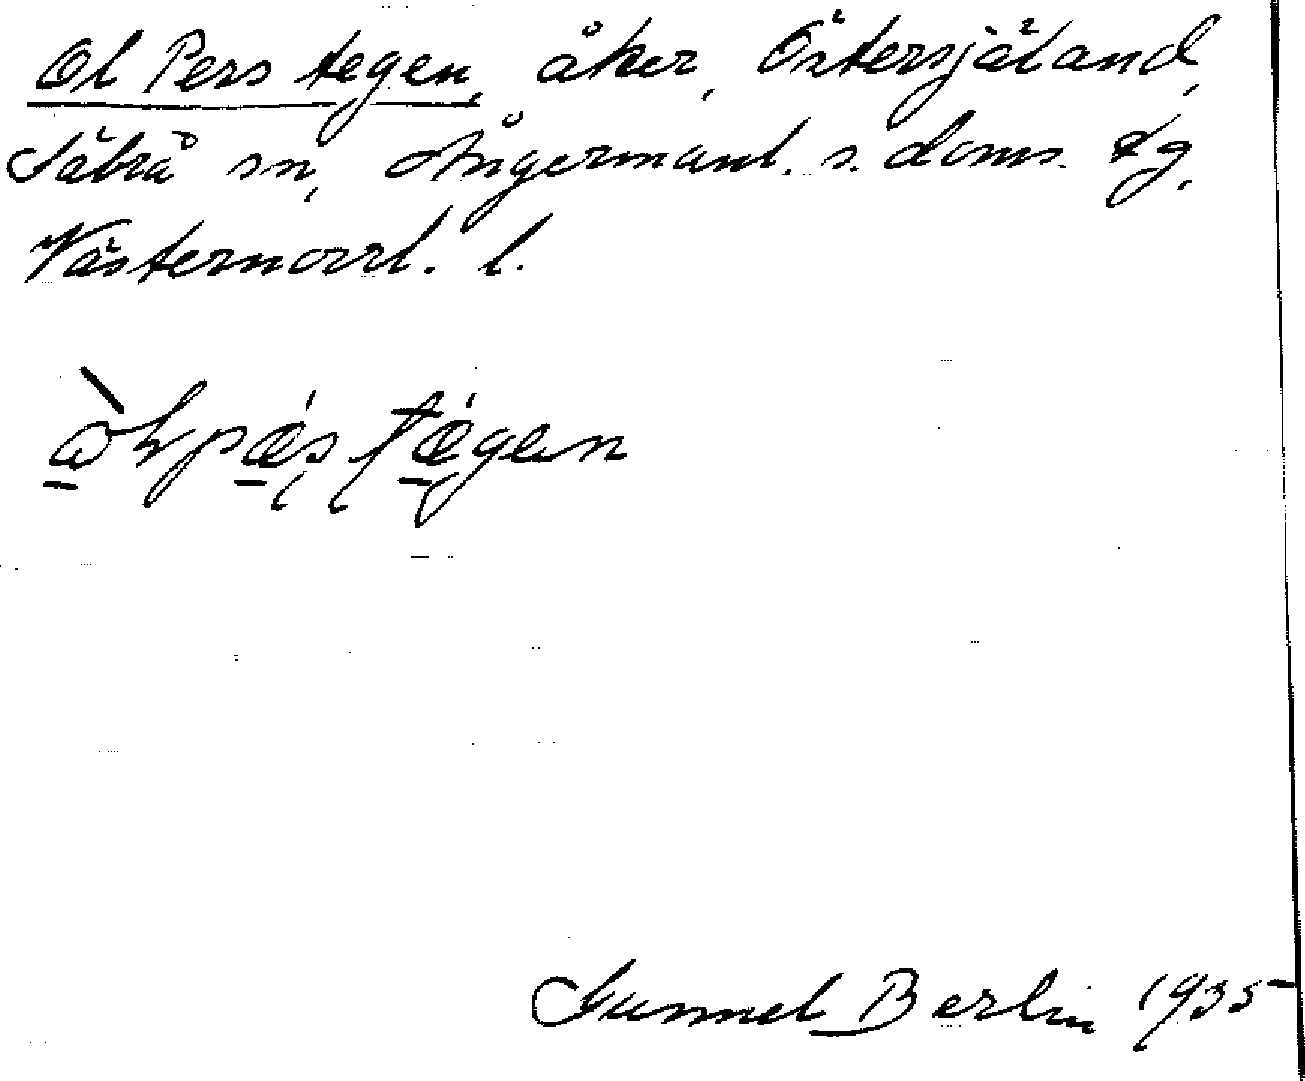 Ol Pers tegen, åker, Östersjäland,
Säbrå sn, Ångermanl. s. doms. tg,
Västernorrl. l.
Gunnel Berlin 1935